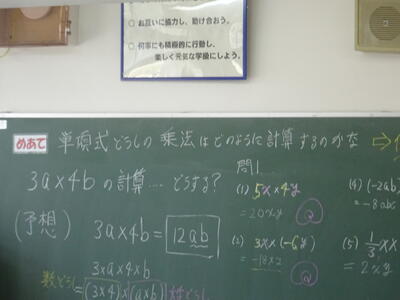 お互いに協力し、助け合おう。
何事にも積極的に行動し、
楽しく元気な学級にしよう。
めあて 単項式どうしの乗法はどのように計算するのかな
3a×4bの計算…どうする?
(予想)
3a×4b=12ab
3×a×4×b
数どうし=(3×4)×(a×b)
問1
(1) 5x×4y
=20xy
(2) 3x×(-6y)
=-18xy
(4) (-2ab)
=-8abc
(5) 1/3x×
=2xy